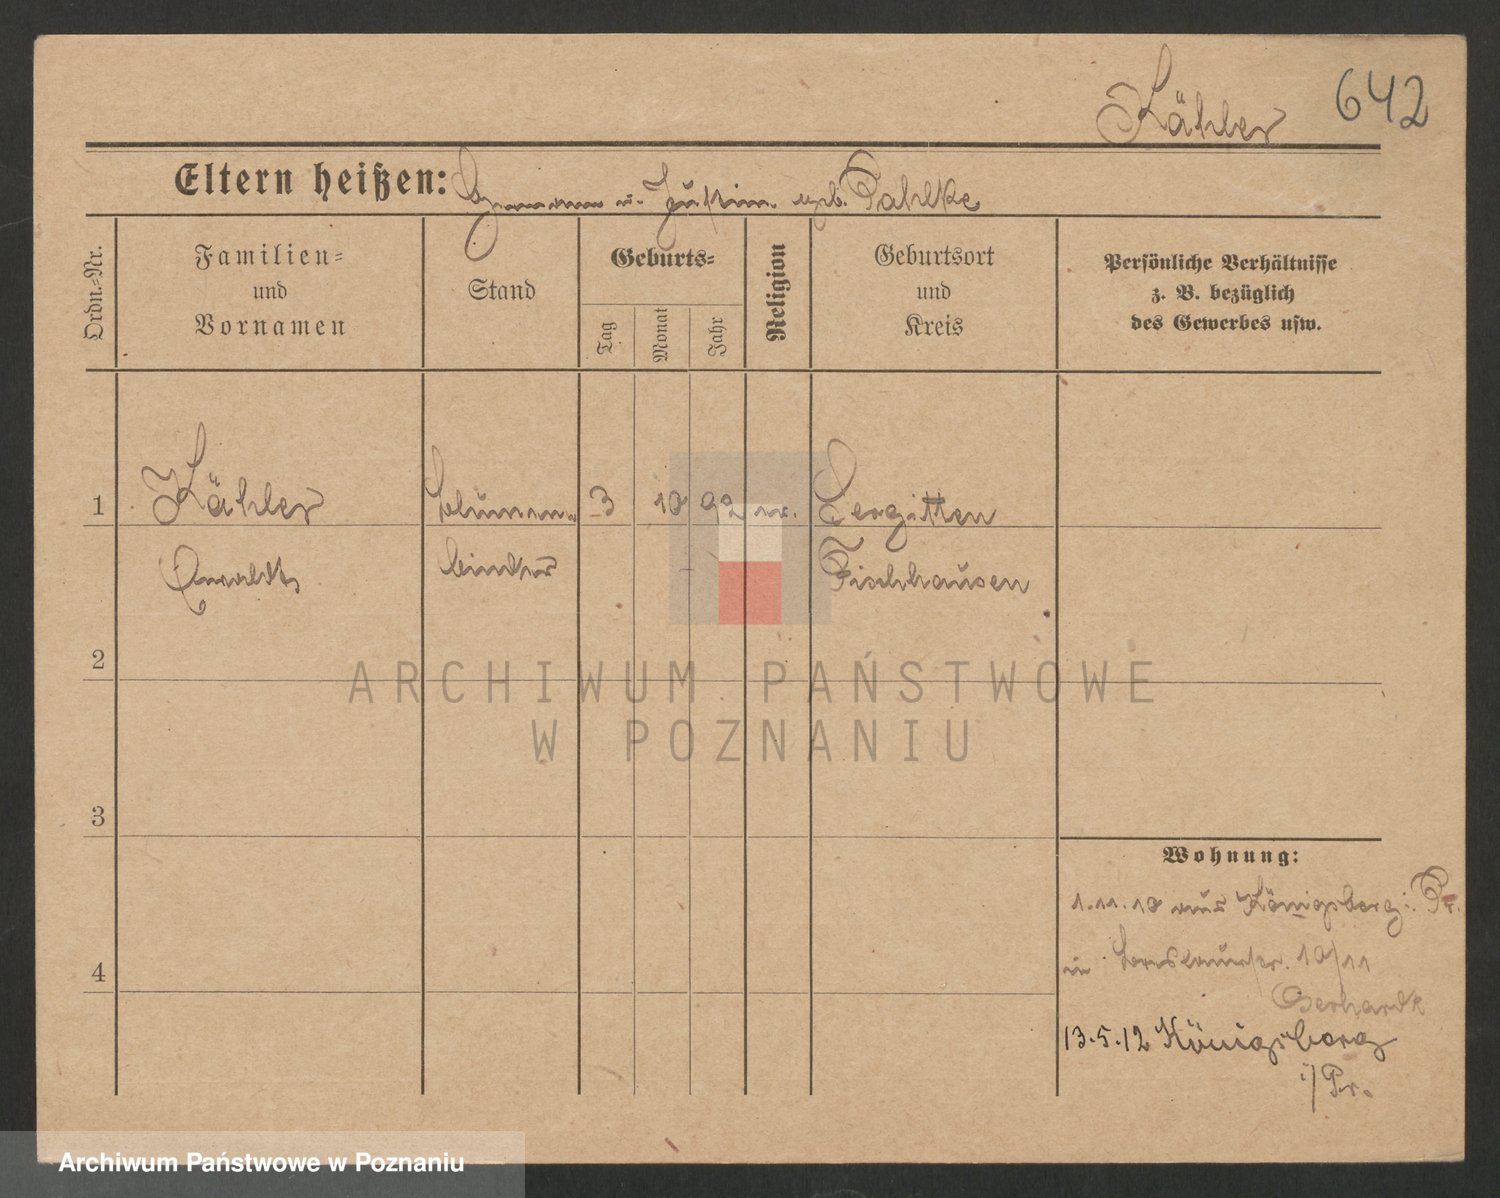 Kähler 642
Eltern heißen: Hermann u. Justine geb. Pahlke
Ordn.-Nr.
Familien-
und
Vornamen
Stand
Geburts-
Tag
Monat
Jahr
Religion
Geburtsort
und
Kreis
Persönliche Verhältnisse
z. B. bezüglich
des Gewerbes usw.
1 Kähler Blumen- 3 10 92 ev. Sergitten
binder Fischhausen
2
3
4
Wohnung:
1.11.10 aus Königsberg i. Pr.
in Breslauerstr. 10/11
Gerhardt
13.5.12 Königsberg
i/Pr.
ARCHIWUM PAŃSTWOWE
W POZNANIU
Archiwum Państwowe w Poznaniu